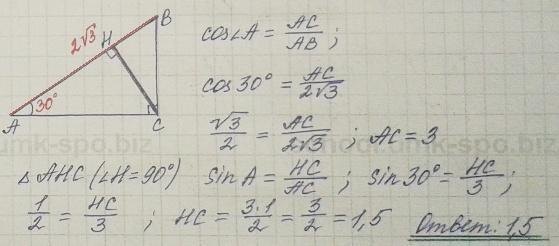 B
2√3
H
cos∠A = AC/AB ;
cos 30° = AC/2√3
30°
A
C
√3/2 = AC/2√3 ; AC = 3
△ AHC (∠H = 90°) sin A = HC/AC ; sin 30° = HC/3 ;
1/2 = HC/3 ; HC = 3·1/2 = 3/2 = 1,5 Ответ: 1,5
umk-spo.biz